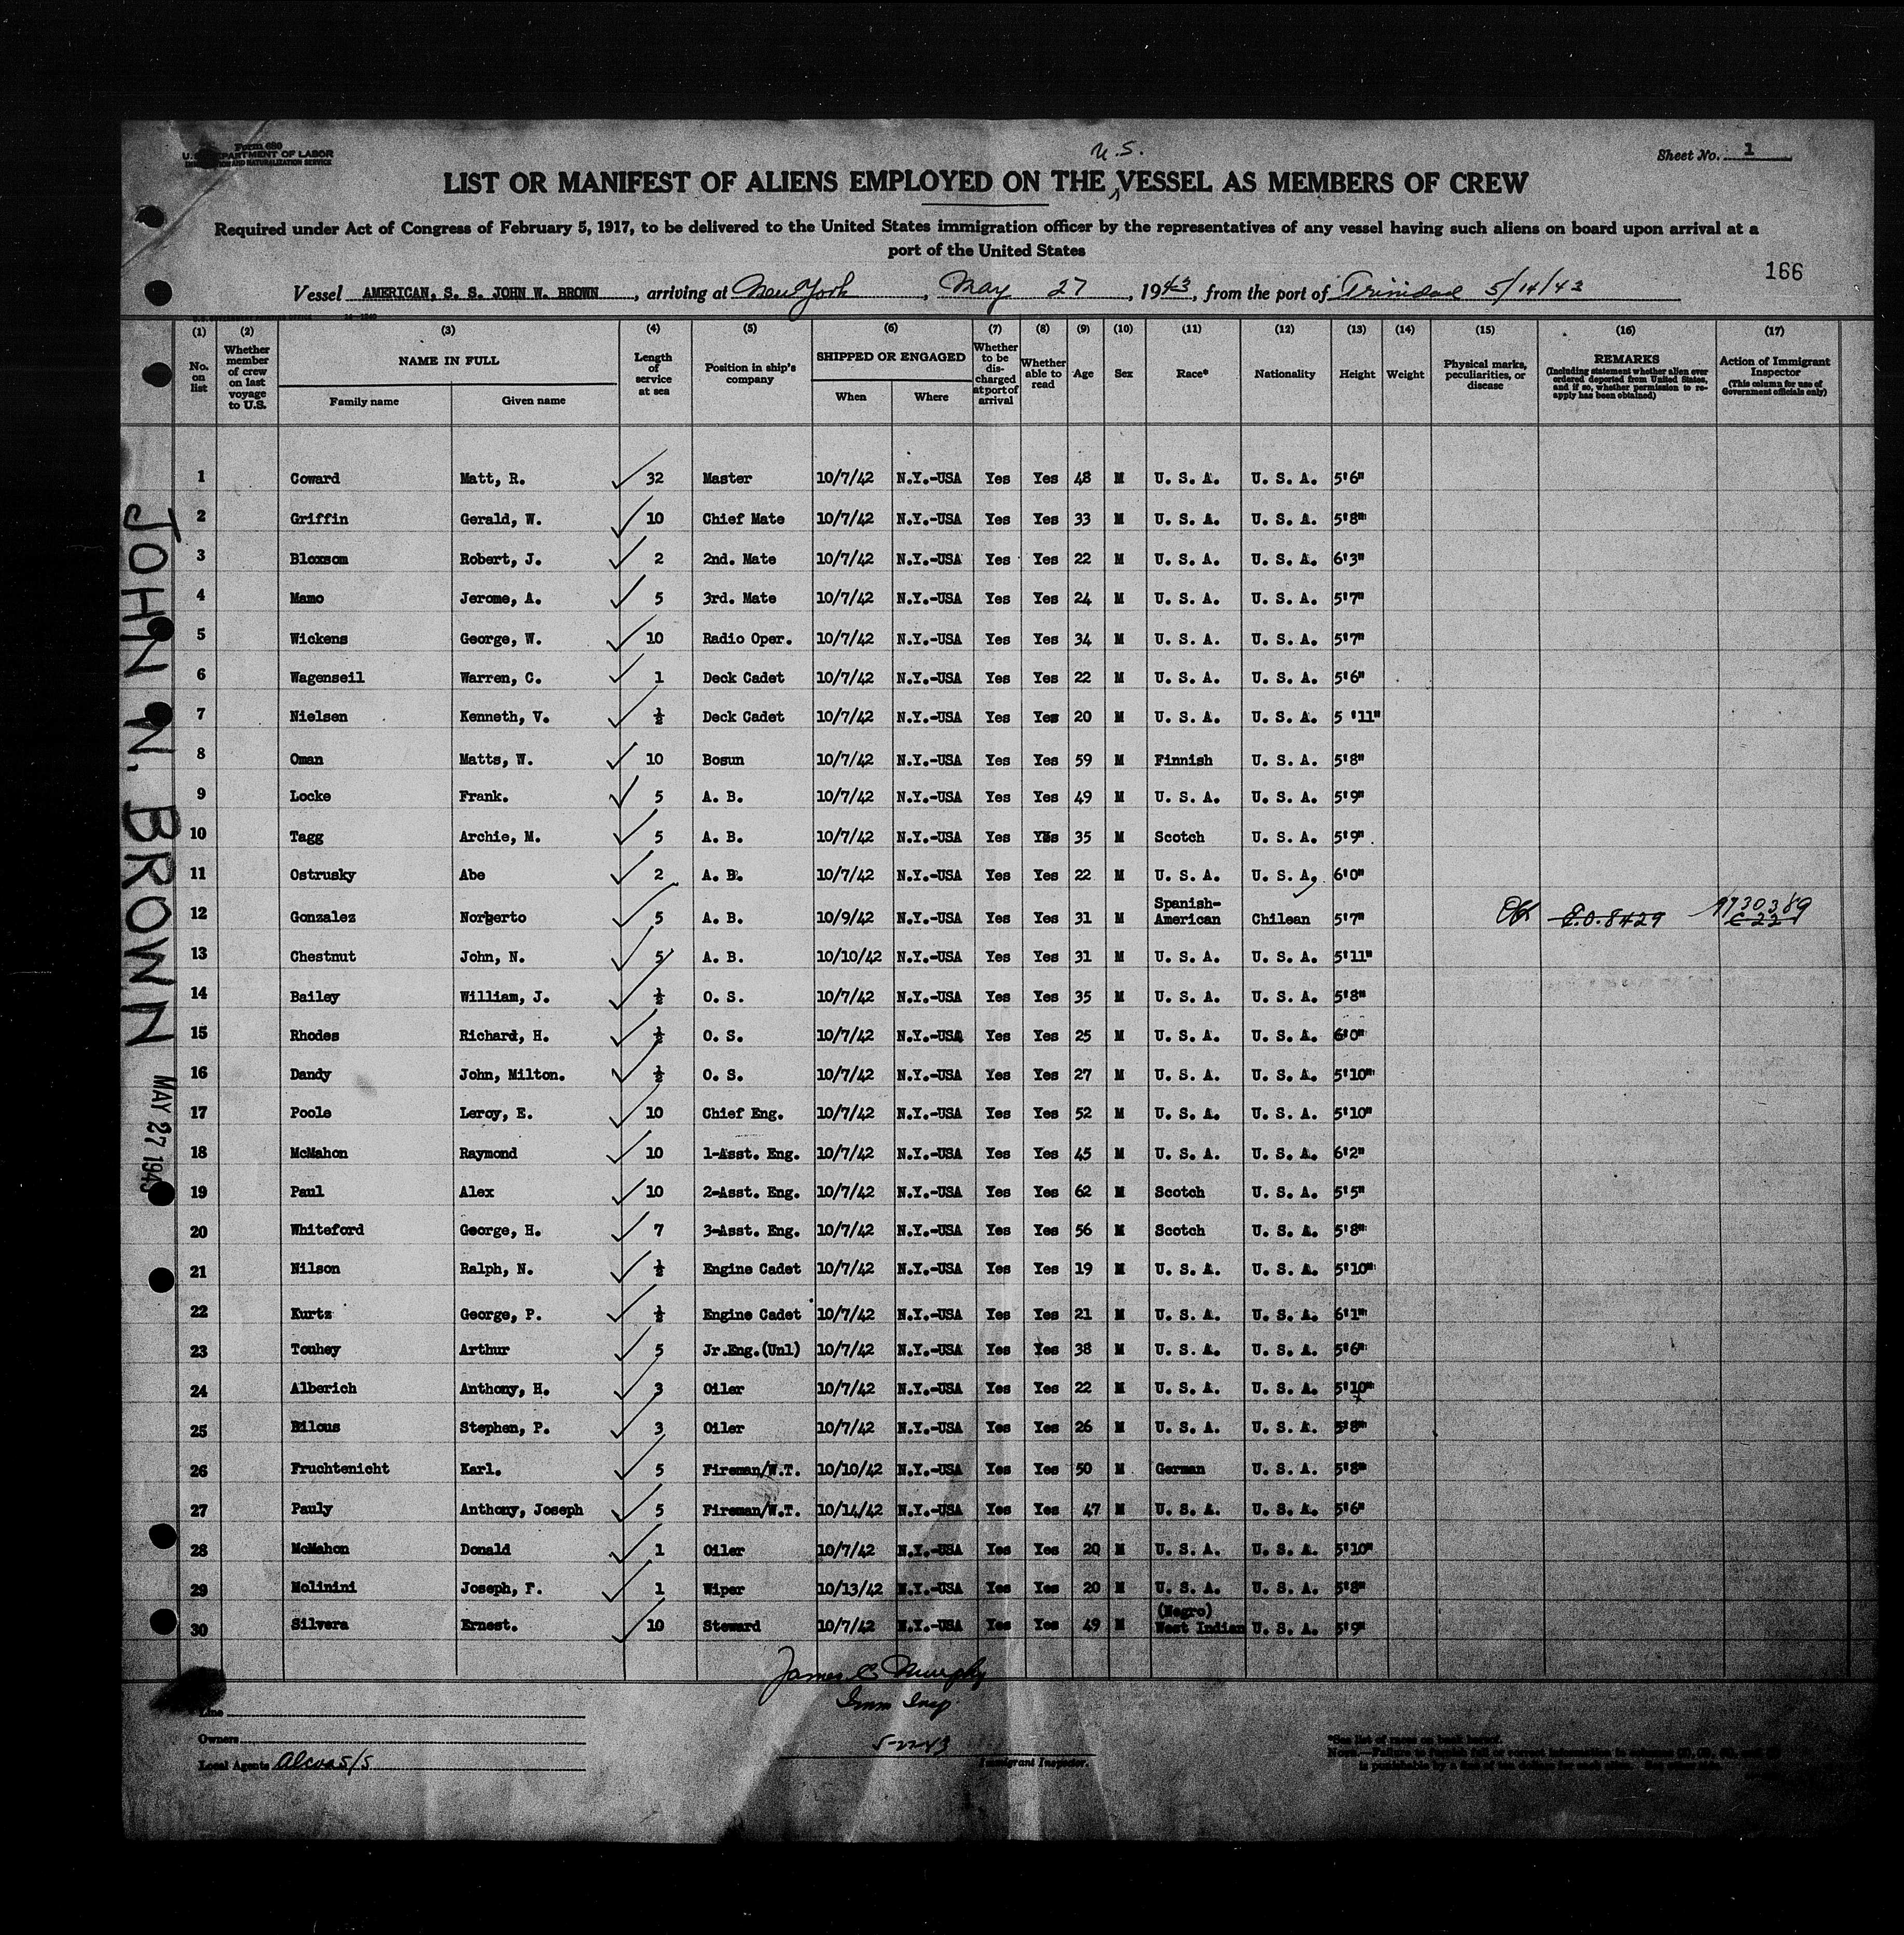 Form 680
U.S. DEPARTMENT OF LABOR
IMMIGRATION AND NATURALIZATION SERVICE
Sheet No. 1
U.S.
LIST OR MANIFEST OF ALIENS EMPLOYED ON THE VESSEL AS MEMBERS OF CREW
Required under Act of Congress of February 5, 1917, to be delivered to the United States immigration officer by the representatives of any vessel having such aliens on board upon arrival at a
port of the United States
166
Vessel AMERICAN, S. S. JOHN W. BROWN, arriving at New York, May 27, 1943, from the port of Trinidad 5/14/43
(1) (2) (3) (4) (5) (6) (7) (8) (9) (10) (11) (12) (13) (14) (15) (16) (17)
No. on list
Whether member of crew on last voyage to U.S.
NAME IN FULL
Family name Given name
Length of service at sea
Position in ship's company
SHIPPED OR ENGAGED
When Where
Whether to be discharged at port of arrival
Whether able to read
Age
Sex
Race*
Nationality
Height
Weight
Physical marks, peculiarities, or disease
REMARKS
(Including statement whether alien ever ordered deported from United States, and if so, whether permission to re-apply has been obtained)
Action of Immigrant Inspector
(This column for use of Government officials only)
1 Coward Matt, R. 32 Master 10/7/42 N.Y.-USA Yes Yes 48 M U. S. A. U. S. A. 5'6"
2 Griffin Gerald, W. 10 Chief Mate 10/7/42 N.Y.-USA Yes Yes 33 M U. S. A. U. S. A. 5'8"
3 Bloxsom Robert, J. 2 2nd. Mate 10/7/42 N.Y.-USA Yes Yes 22 M U. S. A. U. S. A. 6'3"
4 Mamo Jerome, A. 5 3rd. Mate 10/7/42 N.Y.-USA Yes Yes 24 M U. S. A. U. S. A. 5'7"
5 Wickens George, W. 10 Radio Oper. 10/7/42 N.Y.-USA Yes Yes 34 M U. S. A. U. S. A. 5'7"
6 Wagenseil Warren, C. 1 Deck Cadet 10/7/42 N.Y.-USA Yes Yes 22 M U. S. A. U. S. A. 5'6"
7 Nielsen Kenneth, V. ½ Deck Cadet 10/7/42 N.Y.-USA Yes Yes 20 M U. S. A. U. S. A. 5 '11"
8 Oman Matts, W. 10 Bosun 10/7/42 N.Y.-USA Yes Yes 59 M Finnish U. S. A. 5'8"
9 Locke Frank. 5 A. B. 10/7/42 N.Y.-USA Yes Yes 49 M U. S. A. U. S. A. 5'9"
10 Tagg Archie, M. 5 A. B. 10/7/42 N.Y.-USA Yes Yes 35 M Scotch U. S. A. 5'9"
11 Ostrusky Abe 2 A. B. 10/7/42 N.Y.-USA Yes Yes 22 M U. S. A. U. S. A. 6'0"
12 Gonzalez Norberto 5 A. B. 10/9/42 N.Y.-USA Yes Yes 31 M Spanish-American Chilean 5'7" OK E.O.8429 9730389 C 22
13 Chestnut John, N. 5 A. B. 10/10/42 N.Y.-USA Yes Yes 31 M U. S. A. U. S. A. 5'11"
14 Bailey William, J. ½ O. S. 10/7/42 N.Y.-USA Yes Yes 35 M U. S. A. U. S. A. 5'8"
15 Rhodes Richard, H. ½ O. S. 10/7/42 N.Y.-USA Yes Yes 25 M U. S. A. U. S. A. 6'0"
16 Dandy John, Milton. ½ O. S. 10/7/42 N.Y.-USA Yes Yes 27 M U. S. A. U. S. A. 5'10"
17 Poole Leroy, E. 10 Chief Eng. 10/7/42 N.Y.-USA Yes Yes 52 M U. S. A. U. S. A. 5'10"
18 McMahon Raymond 10 1-Asst. Eng. 10/7/42 N.Y.-USA Yes Yes 45 M U. S. A. U. S. A. 6'2"
19 Paul Alex 10 2-Asst. Eng. 10/7/42 N.Y.-USA Yes Yes 62 M Scotch U. S. A. 5'5"
20 Whiteford George, H. 7 3-Asst. Eng. 10/7/42 N.Y.-USA Yes Yes 56 M Scotch U. S. A. 5'8"
21 Nilson Ralph, N. ½ Engine Cadet 10/7/42 N.Y.-USA Yes Yes 19 M U. S. A. U. S. A. 5'10"
22 Kurtz George, P. ½ Engine Cadet 10/7/42 N.Y.-USA Yes Yes 21 M U. S. A. U. S. A. 6'1"
23 Touhey Arthur 5 Jr.Eng.(Unl) 10/7/42 N.Y.-USA Yes Yes 38 M U. S. A. U. S. A. 5'6"
24 Alberich Anthony, H. 3 Oiler 10/7/42 N.Y.-USA Yes Yes 22 M U. S. A. U. S. A. 5'10"
25 Bilous Stephen, P. 3 Oiler 10/7/42 N.Y.-USA Yes Yes 26 M U. S. A. U. S. A. 5'8"
26 Fruchtenicht Karl. 5 Fireman/W.T. 10/10/42 N.Y.-USA Yes Yes 50 M German U. S. A. 5'8"
27 Pauly Anthony, Joseph 5 Fireman/W.T. 10/14/42 N.Y.-USA Yes Yes 47 M U. S. A. U. S. A. 5'6"
28 McMahon Donald 1 Oiler 10/7/42 N.Y.-USA Yes Yes 20 M U. S. A. U. S. A. 5'10"
29 Molinini Joseph, F. 1 Wiper 10/13/42 N.Y.-USA Yes Yes 20 M U. S. A. U. S. A. 5'8"
30 Silvera Ernest. 10 Steward 10/7/42 N.Y.-USA Yes Yes 49 M (Negro) West Indian U. S. A. 5'9"
JOHN W. BROWN
MAY 27 1943
James E. Murphy
Imm Insp.
Line
Owners
Local Agents Alcoa S/S
Immigrant Inspector.
*See list of races on back hereof.